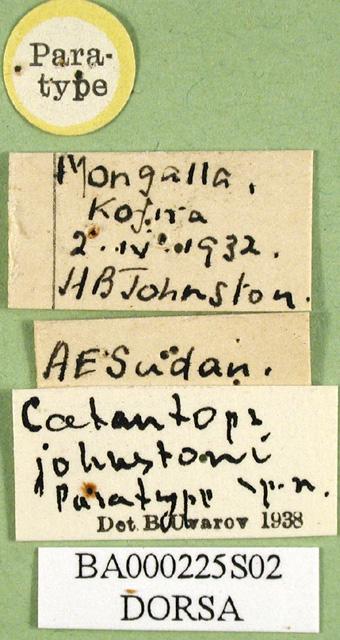 Para-
type
Mongalla.
Kofira
2.IV.1932.
HBJohnston.
AESudan.
Catantops
johnstoni
Paratype sp.n.
Det. B.Uvarov 1938
BA000225S02
DORSA